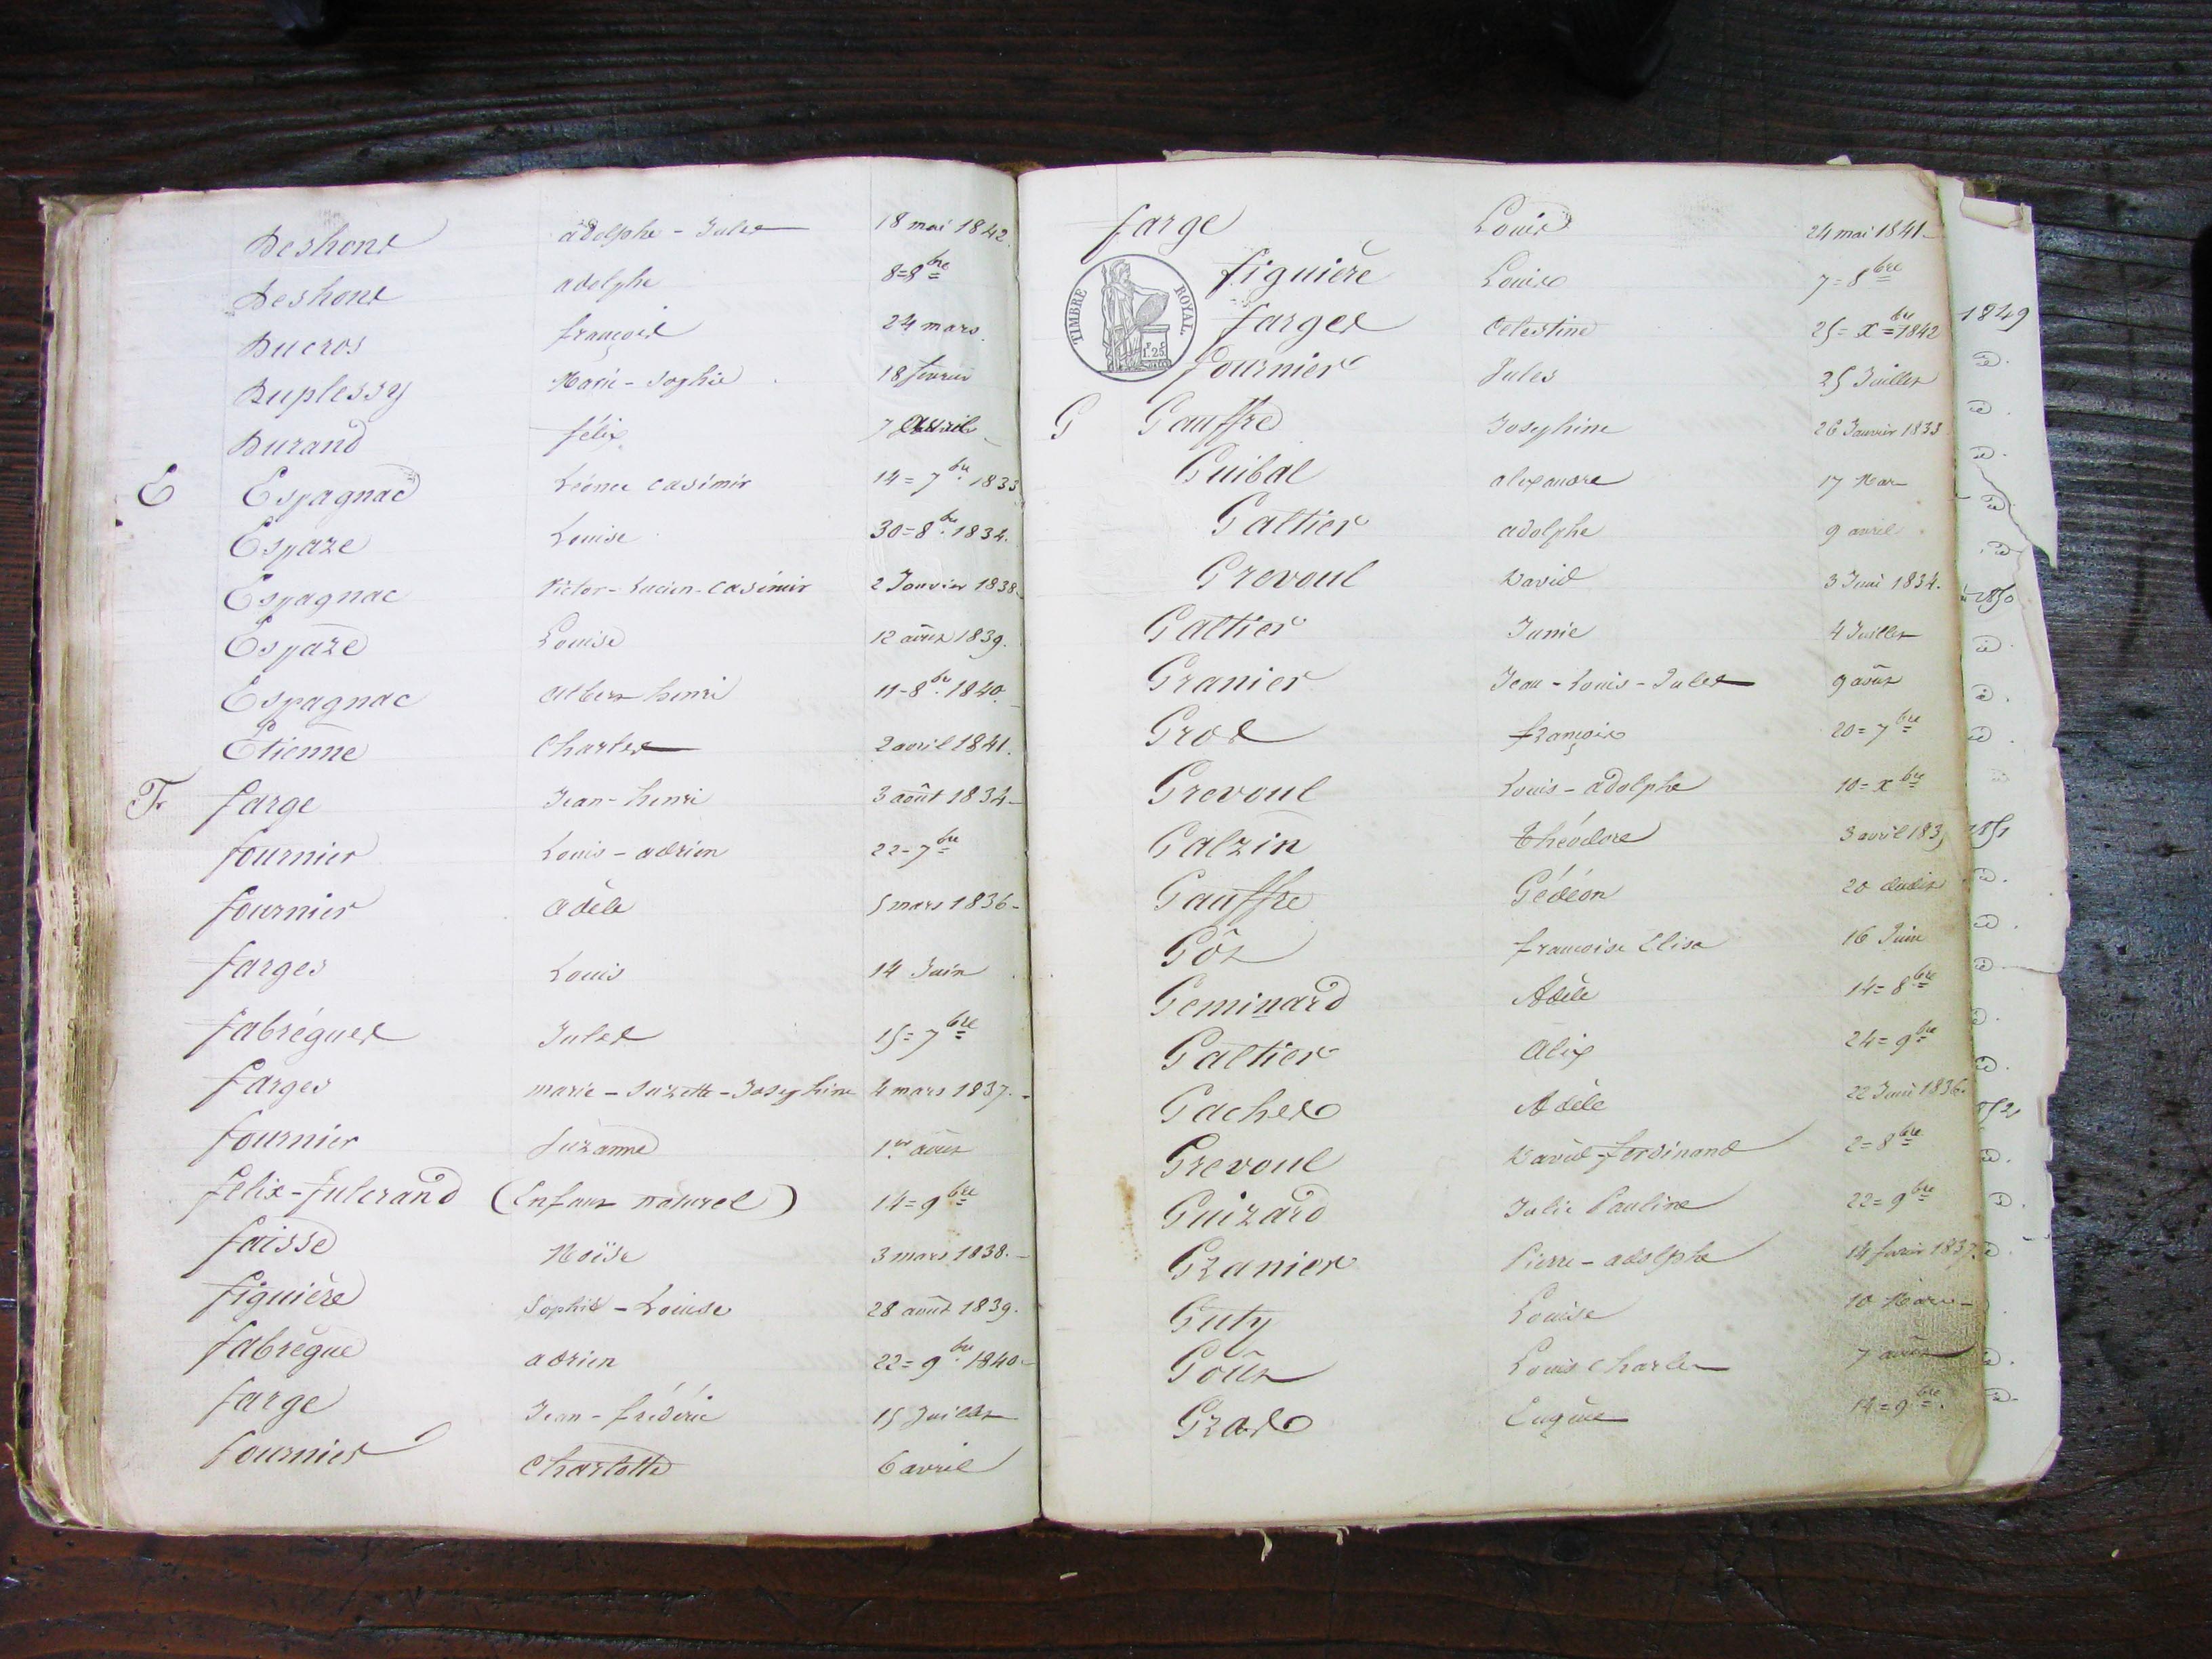 Deshons adolphe - Jules 18 mai 1842.
Deshons adolphe 8=8bre
Ducros françois 24 mars.
Duplessy Marie - Sophie 18 février
Durand félix 7 avril
E Espagnac Léonce casimir 14=7bre 1833
Espaze Louise 30=8bre 1834.
Espagnac Victor-Lucien-casimir 2 Janvier 1838
Espaze Louise 12 août 1839.
Espagnac albert henri 11-8bre 1840.
Etienne Charles 2 avril 1841.
F farge Jean-henri 3 août 1834
fournier Louis-adrien 22-7bre
fournier adèle 5 mars 1836
farges Louis 14 Juin
fabrégues Jules 15=7bre
farges marie-Suzette-Josephine 4 mars 1837.
fournier Suzanne 1er août
félix-fulcrand (Enfant naturel) 14=9bre
faisse Moïse 3 mars 1838.
figuière Sophie-Louise 28 août 1839.
fabrègue adrien 22=9bre 1840
farge Jean-frédéric 15 Juillet
fournier Charlotte 6 avril
farge Louis 24 mai 1841
TIMBRE ROYAL.
1f.25
figuière Louis 7=8bre
farges Celestine 25=Xbre=1842
fournier Jules 25 Juillet
G Gauffre Josephine 26 Janvier 1833
Guibal alexandre 17 Mars
Galtier adolphe 9 avril
Grevoul David 3 Juin 1834.
Galtier Junie 4 Juillet
Granier Jean-Louis-Jules 9 août
Gros françois 20=7bre
Grevoul Louis-adolphe 10=Xbre
Galzin Théodore 3 avril 1835
Gauffre Gédéon 20
Gôt francoise Elisa 16 Juin
Geminard Adèle 14=8bre
Galtier Alix 24=9bre
Gaches Adèle 22 Juin 1836.
Grevoul David-ferdinand 2=8bre
Guizard Julie Pauline 22=9bre
Granier Pierre-adolphe 14 février 1837.
Guty Louise 10 Mars
Goût Louis Charles 7 août
Gras Eugène 14=9bre.
1849